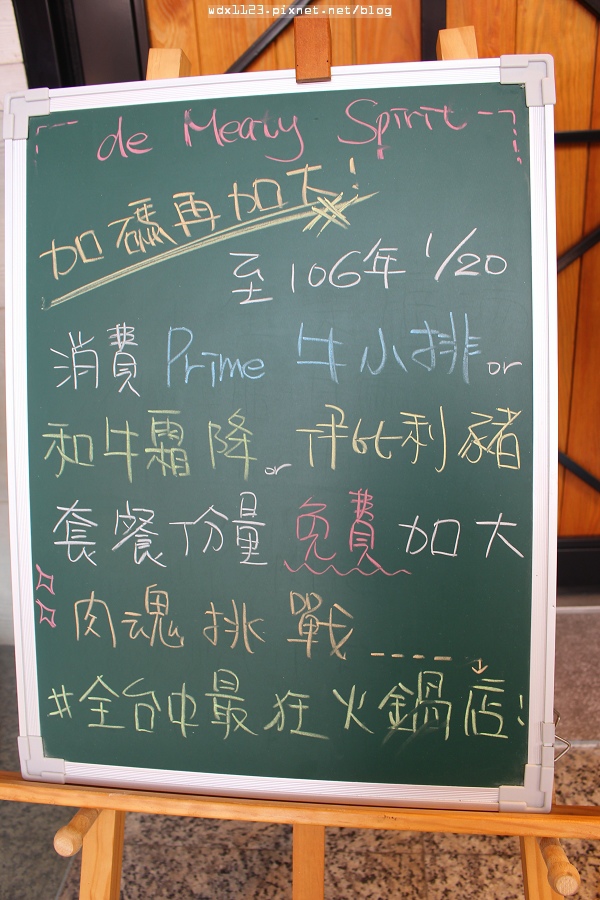 wdx1123.pixnet.net/blog
de Meaty Spirit
加碼再加大!
至106年 1/20
消費 Prime 牛小排 or
和牛霜降 or 伊比利豬
套餐份量免費加大
肉魂挑戰----
#全台中最狂火鍋店!